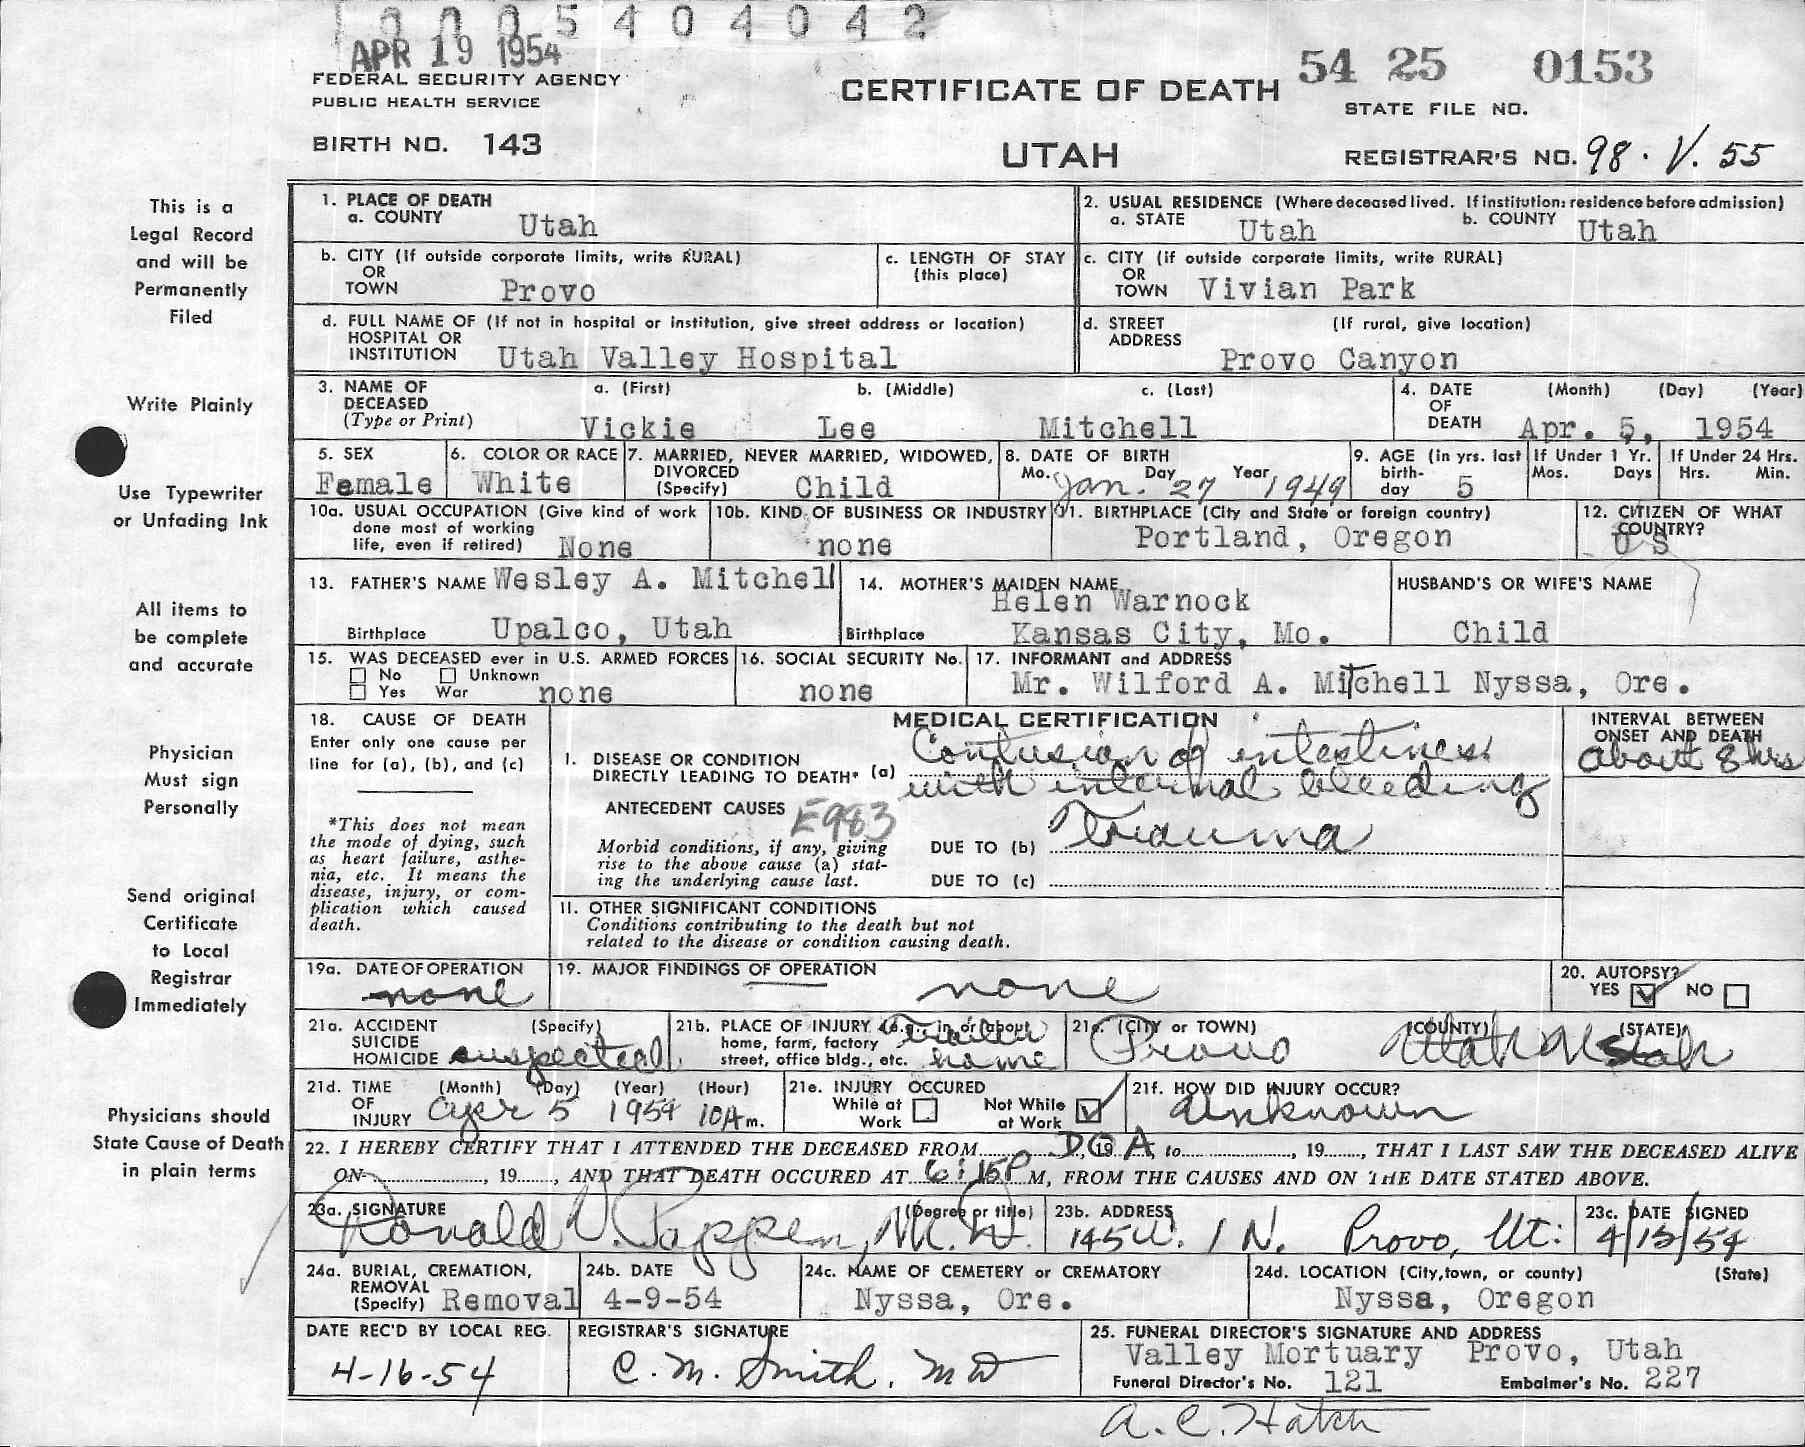 0005404042
APR 19 1954
FEDERAL SECURITY AGENCY
PUBLIC HEALTH SERVICE
BIRTH NO. 143
CERTIFICATE OF DEATH
UTAH
54 25 0153
STATE FILE NO.
REGISTRAR'S NO. 98 · V. 55
This is a
Legal Record
and will be
Permanently
Filed
Write Plainly
Use Typewriter
or Unfading Ink
All items to
be complete
and accurate
Physician
Must sign
Personally
Send original
Certificate
to Local
Registrar
Immediately
Physicians should
State Cause of Death
in plain terms
1. PLACE OF DEATH
a. COUNTY Utah
2. USUAL RESIDENCE (Where deceased lived. If institution: residence before admission)
a. STATE Utah b. COUNTY Utah
b. CITY (If outside corporate limits, write RURAL)
OR
TOWN Provo
c. LENGTH OF STAY
(this place)
c. CITY (if outside corporate limits, write RURAL)
OR
TOWN Vivian Park
d. FULL NAME OF (If not in hospital or institution, give street address or location)
HOSPITAL OR
INSTITUTION Utah Valley Hospital
d. STREET (If rural, give location)
ADDRESS Provo Canyon
3. NAME OF a. (First) b. (Middle) c. (Last)
DECEASED
(Type or Print) Vickie Lee Mitchell
4. DATE (Month) (Day) (Year)
OF
DEATH Apr. 5, 1954
5. SEX
Female
6. COLOR OR RACE
White
7. MARRIED, NEVER MARRIED, WIDOWED,
DIVORCED
(Specify) Child
8. DATE OF BIRTH
Mo. Day Year
Jan. 27 1949
9. AGE (in yrs. last
birth-
day 5
If Under 1 Yr.
Mos. Days
If Under 24 Hrs.
Hrs. Min.
10a. USUAL OCCUPATION (Give kind of work
done most of working
life, even if retired) None
10b. KIND OF BUSINESS OR INDUSTRY
none
11. BIRTHPLACE (City and State or foreign country)
Portland, Oregon
12. CITIZEN OF WHAT
COUNTRY?
U S
13. FATHER'S NAME Wesley A. Mitchell
Birthplace Upalco, Utah
14. MOTHER'S MAIDEN NAME
Helen Warnock
Birthplace Kansas City, Mo.
HUSBAND'S OR WIFE'S NAME
Child
15. WAS DECEASED ever in U.S. ARMED FORCES
No Unknown
Yes War none
16. SOCIAL SECURITY No.
none
17. INFORMANT and ADDRESS
Mr. Wilford A. Mitchell Nyssa, Ore.
18. CAUSE OF DEATH
Enter only one cause per
line for (a), (b), and (c)
*This does not mean
the mode of dying, such
as heart failure, asthe-
nia, etc. It means the
disease, injury, or com-
plication which caused
death.
MEDICAL CERTIFICATION
I. DISEASE OR CONDITION
DIRECTLY LEADING TO DEATH* (a) Contusion of intestines
with internal bleeding
ANTECEDENT CAUSES E983
Morbid conditions, if any, giving
rise to the above cause (a) stat-
ing the underlying cause last.
DUE TO (b) Trauma
DUE TO (c)
INTERVAL BETWEEN
ONSET AND DEATH
about 8 hrs
II. OTHER SIGNIFICANT CONDITIONS
Conditions contributing to the death but not
related to the disease or condition causing death.
19a. DATE OF OPERATION
none
19. MAJOR FINDINGS OF OPERATION
none
20. AUTOPSY?
YES NO
21a. ACCIDENT (Specify)
SUICIDE
HOMICIDE suspected
21b. PLACE OF INJURY (e.g., in or about
home, farm, factory
street, office bldg., etc. Trailer home
21c. (CITY or TOWN) (COUNTY) (STATE)
Provo Utah Utah
21d. TIME (Month) (Day) (Year) (Hour)
OF
INJURY Apr 5 1954 10A m.
21e. INJURY OCCURED
While at Work Not While at Work
21f. HOW DID INJURY OCCUR?
Unknown
22. I HEREBY CERTIFY THAT I ATTENDED THE DECEASED FROM D O A, 19, to, 19, THAT I LAST SAW THE DECEASED ALIVE
ON, 19, AND THAT DEATH OCCURED AT 6:15P M, FROM THE CAUSES AND ON THE DATE STATED ABOVE.
23a. SIGNATURE (Degree or title)
Ronald V. M.D.
23b. ADDRESS
145 W. 1 N. Provo, Ut.
23c. DATE SIGNED
4/15/54
24a. BURIAL, CREMATION,
REMOVAL
(Specify) Removal
24b. DATE
4-9-54
24c. NAME OF CEMETERY or CREMATORY
Nyssa, Ore.
24d. LOCATION (City, town, or county) (State)
Nyssa, Oregon
DATE REC'D BY LOCAL REG.
4-16-54
REGISTRAR'S SIGNATURE
C. M. Smith, MD
25. FUNERAL DIRECTOR'S SIGNATURE AND ADDRESS
Valley Mortuary Provo, Utah
Funeral Director's No. 121 Embalmer's No. 227
A. C. Hatch